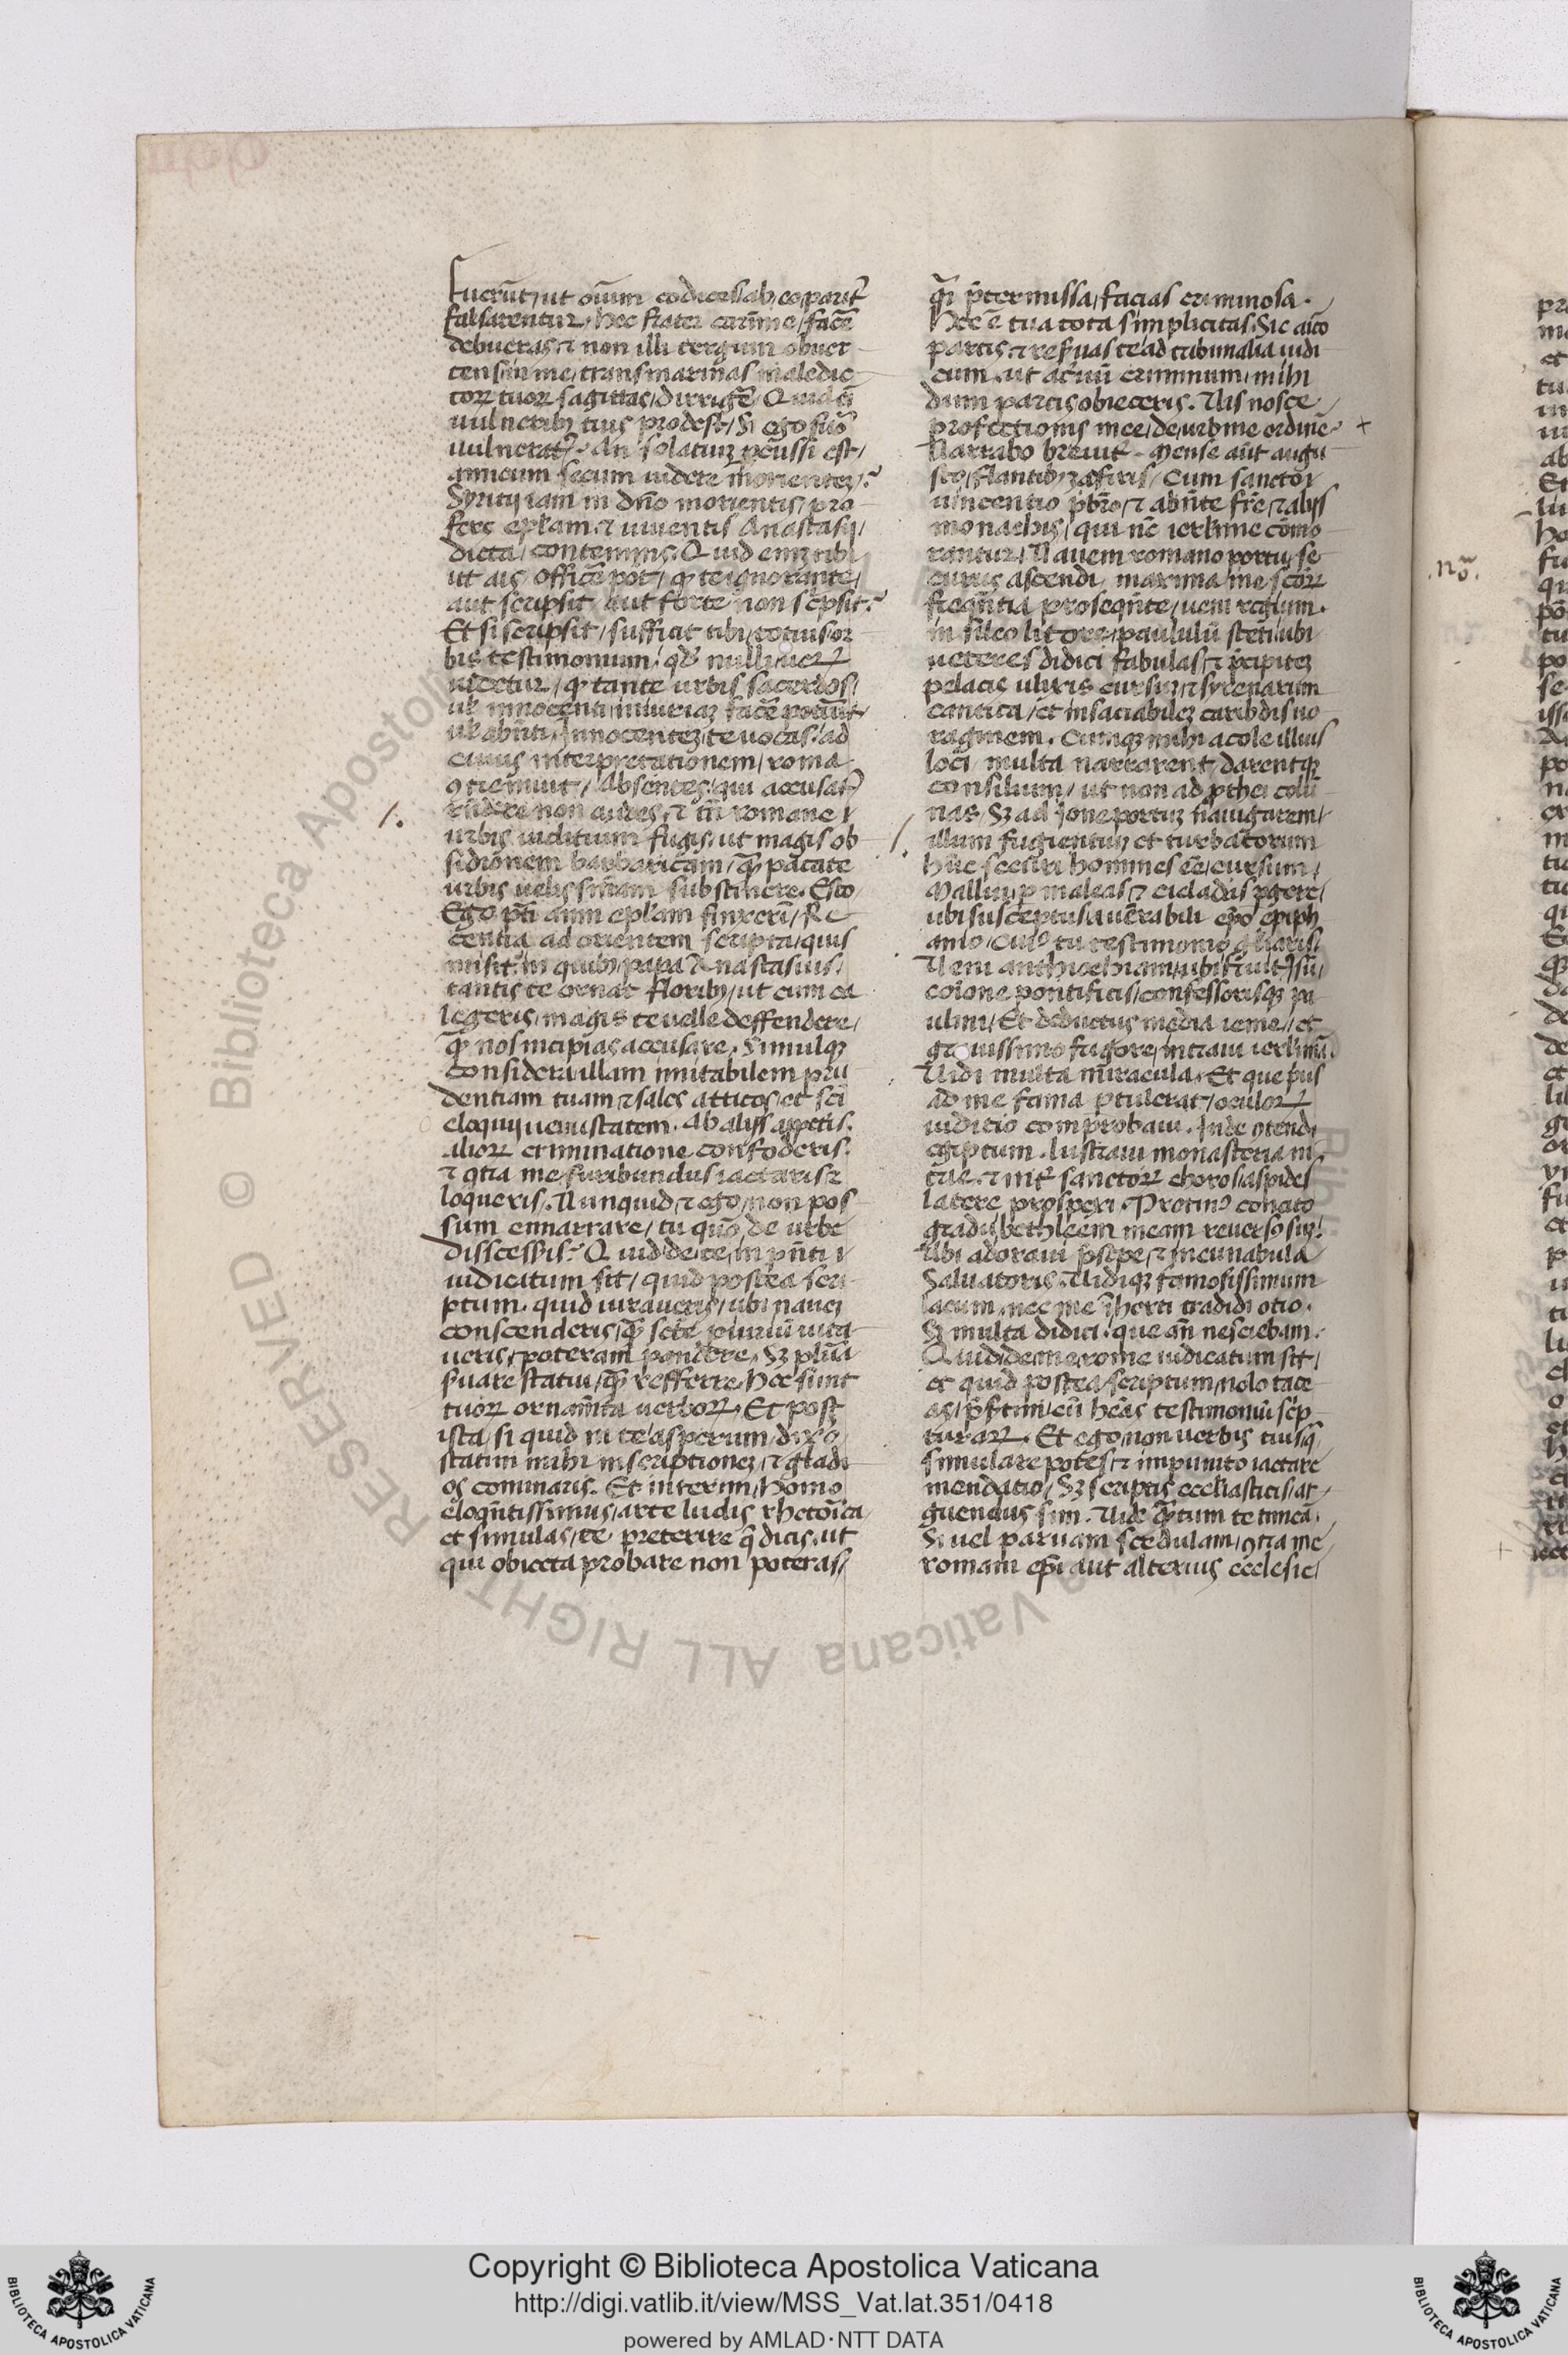 fuerūt / ut oīum codices / ab eo parit᷑
falsarentur. hec frater carīme / facē
debueras / ⁊ non illi tergum obuer
ten sim me / transmarinas maledic
torꝝ tuorꝝ sagittas / dirrigē̃. Quid .n.
uulneribꝫ tuis prodest / Si ego fuō
uulnerat᷑? An solatiuꝫ pcussi est /
amicum secum uidere morientez?
Syricij iam in dño morientis / pro
fers eplam. ⁊ uiuentis Anastasij /
dicta / contemnis. Quid eniz tibi
ut ais officē pot / ꝙ te ignorante /
aut scripsit / aut forte non scpsit?
Et si scripsit / sufficit tibi / totius or
bis testimonium. qd' nulli uerꝝ
uidetur / ꝙ tante urbis sacerdos /
ul' innocenti iniuriaꝫ facē potūit
ul' abnti. Innocentez te uocas / ad
cuius interpretationem / roma
ꝯtremuit / Absentes / qui accusat᷑
rñdere non audes. ⁊ tñ romane
urbis iuditium fugis. ut magis ob
sidionem barbaricam / q̃ꝫ pacate
urbis uelis sñiam substinere. Esto
Ego pti anni eplam finxerī / Re
centia ad orientem scripta / quis
misit. in quibꝫ / papa Anastasius /
tantis te ornat floribꝫ / ut cum ea
legeris / magis te uelle deffendere /
q̃ꝫ nos incipias accusare. Simulqꝫ
considera illam imitabilem pru
dentiam tuam ⁊ sales atticos / et sci
eloquij uenustatem. Ab alijs appetis.
aliorꝝ criminatione confoderis.
⁊ ꝯtra me furibundus iactaris ⁊
loqueris. Nunquid ⁊ ego / non pos
sum ennarrare / tu quō de urbe
disscessis? Quid de te / in pñti
iudicatum sit / quid postea scri
ptum. quid iuraueris / ubi nauez
conscenderis / q̃ꝫ scē piuriū uita
ueris / poteram pandere. Sꝫ plura
suare statui / q̃ꝫ refferre. Hec sunt
tuorꝝ ornamta uerborꝝ. Et post
ista / si quid in te asperum / dixō
statim mihi inscriptionez / ⁊ gladi
os cominaris. Et interim / homo
eloqñtissimus / arte ludis rhetorica
et simulas / te preterire q̄ dicis. ut
qui obiecta probare non poteras /
q̃si p̄termissa / facias criminosa.
Hec ē tua tota simplicitas. Sic aīco
parcis / ⁊ refuas te ad tribunalia iudi
cum. ut aceruū criminum / mihi
dum parcis obieceris. Uis nosce
profectionis mee / de urbme ordine
Narrabo breuit᷑. Mense aūt augu
sto / flantibꝫ zafiris / Cum sanctor
uincentio p̄bro / ⁊ abñte fr̄e / ⁊ alijs
monachis / qui nc̄ ierl'me cōmo
rantur / Nauem romano portu / se
curus ascendi / maxima me scōrꝝ
freqñtia proseqñte / ueni regium.
in sileo litore / paululū steti / ubi
ueteres didici fabulas / ⁊ p̄cipitez
pelacis ulixis cursuꝫ / ⁊ syrenarum
cantica / et insaciabilez caribdis uo
raginem. Cumqꝫ mihi acole illius
loci multa narrarent / darentqꝫ
consilium / ut non ad ꝓthei colū
nas / Sꝫ ad Ione portuꝫ nauigarem /
illum fugientiuꝫ et turbatorum
hūc securi hominis eē / cursum /
Mallui / ꝑ maleas / ⁊ cicladas ꝑgere /
ubi susceptus a uenerabili epō epiph
anio / cui' tu testimonio gliaris /
Ueni anthiochiam / ubi fruit' sū /
coione pontificis / confessorisqꝫ pa
ulini / Et deductus media ieme / et
grauissimo frigore / intraui ierl'imā.
Uidi multa miracula. Et que pus
ad me fama ꝑtulerat / oculorꝝ
iuditio comprobaui. Inde ꝯtendi
egiptum. lustraui monasteria ni
trie. ⁊ int᷑ sanctorꝝ choros / aspides
latere prosperi. Protin' concito
gradu / bethleem meam reuers' suꝫ.
Ubi adoraui p̄sepe / ⁊ incunabula
Saluatoris. Uidiqꝫ famosissimum
lacum. nec me īherti tradidi otio.
Sꝫ multa didici. que añ nesciebam.
Quid de me rome iudicatum sit /
et quid postea scriptum / nolo tace
as / p̄sertim / cū heās testimoniū scrip
turarꝝ. Et ego / non uerbis tuis / q̄
simulare potes / ⁊ impunito iactare
mendatio / Sꝫ scriptis eccliasticis / ar
guendus sim. Uide q̃ꝫtum te timeā.
Si uel paruam scedulam / ꝯtra me
romani epi aut alterius ecclesie
.nō.
Copyright © Biblioteca Apostolica Vaticana
http://digi.vatlib.it/view/MSS_Vat.lat.351/0418
powered by AMLAD·NTT DATA